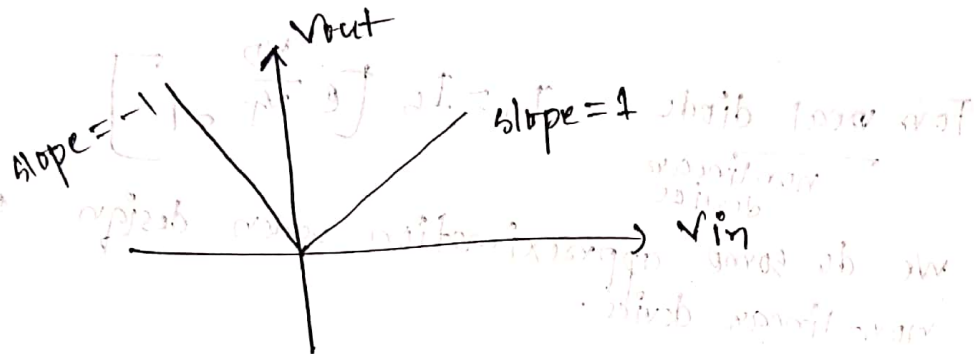 Vout
slope = -1
slope = 1
Vin